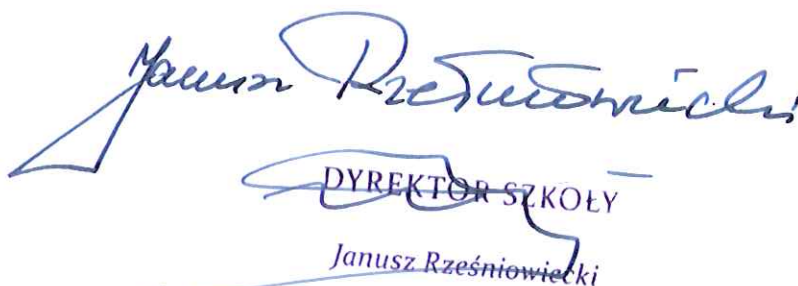 Janusz Rześniowiecki
DYREKTOR SZKOŁY
Janusz Rześniowiecki